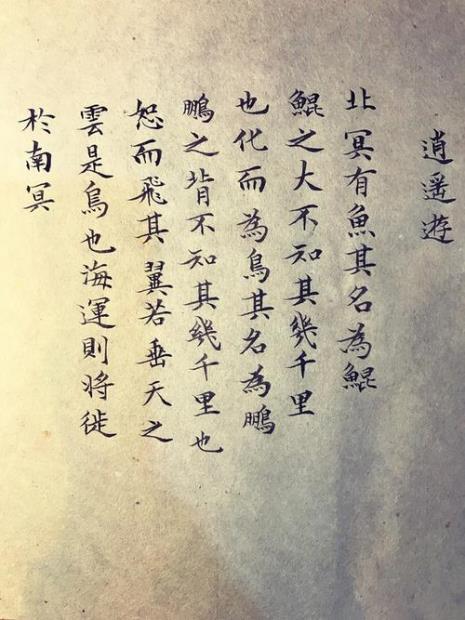 逍遙遊
北冥有魚其名為鯤
鯤之大不知其幾千里
也化而為鳥其名為鵬
鵬之背不知其幾千里也
恕而飛其翼若垂天之
雲是鳥也海運則将徙
於南冥